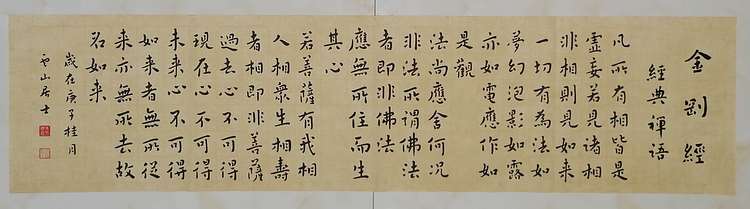 金剛經
經典禪語
凡所有相皆是
虛妄若見諸相
非相則見如來
一切有為法如
夢幻泡影如露
亦如電應作如
是觀
法尚應舍何況
非法所謂佛法
者即非佛法
應無所住而生
其心
若菩薩有我相
人相眾生相壽
者相即非菩薩
過去心不可得
現在心不可得
未來心不可得
如來者無所從
來亦無所去故
名如來
歲在庚子桂月
山居士